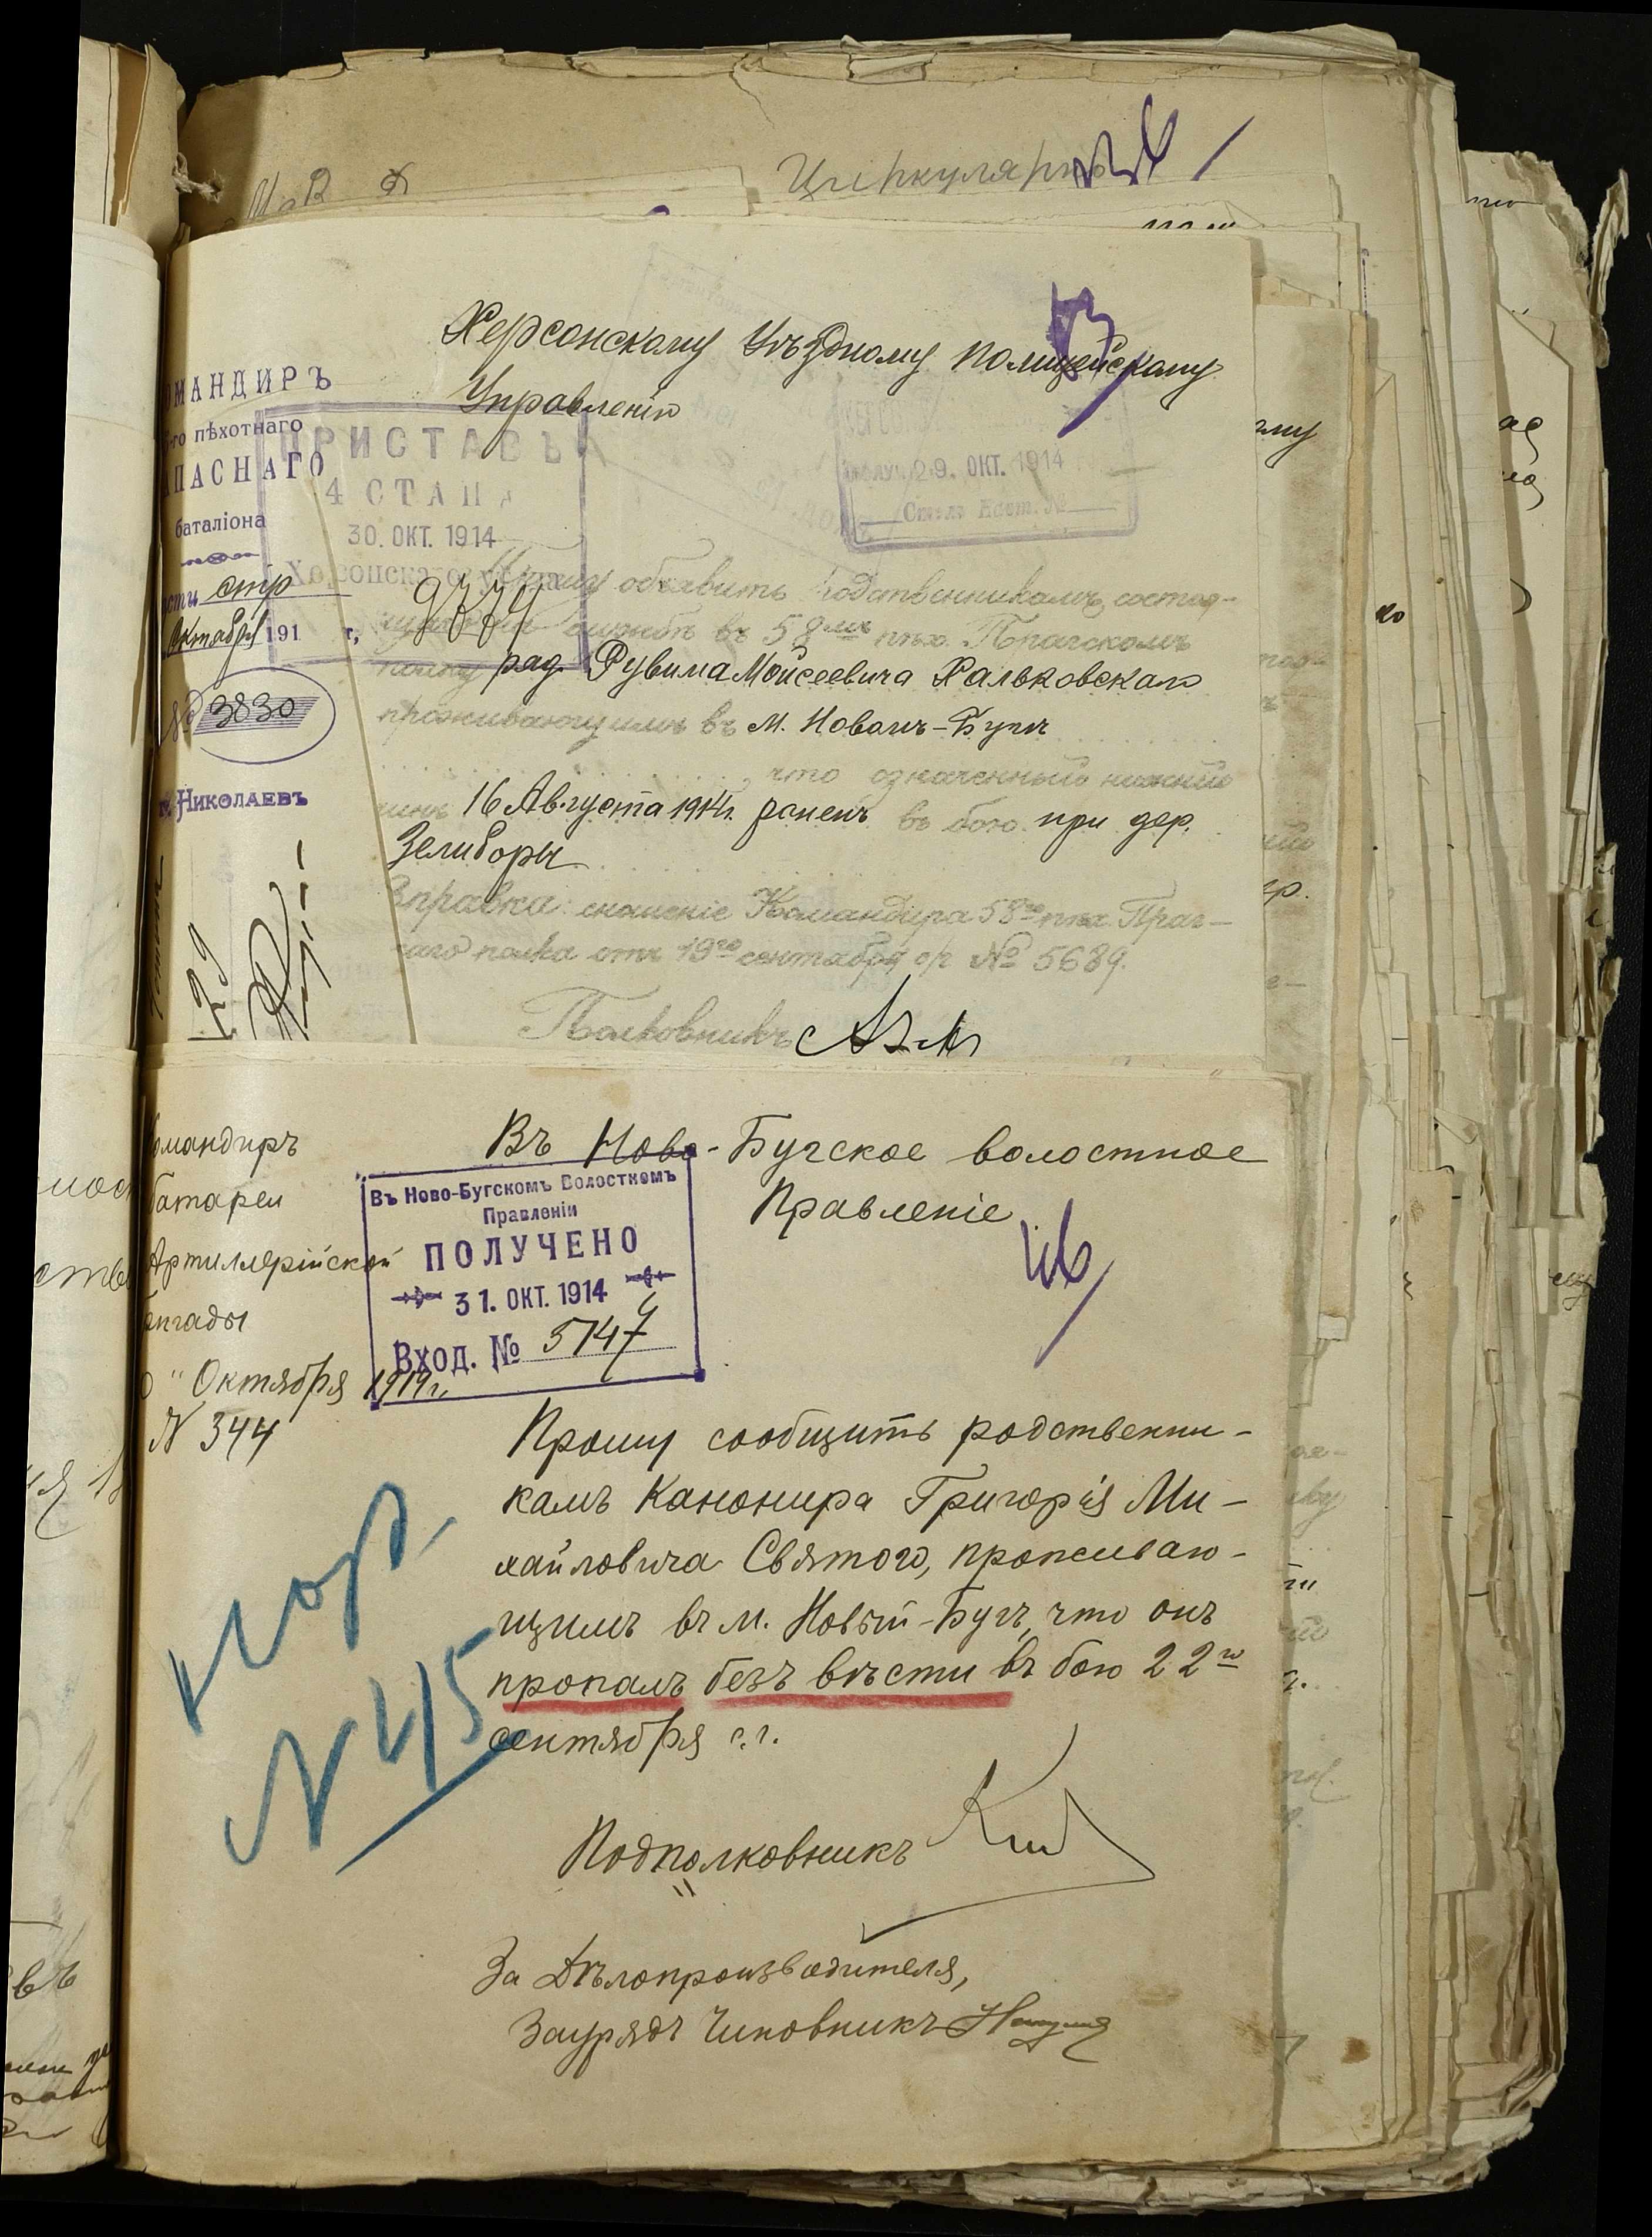 М. В. Д.
Циркулярно
Херсонскому Уѣздному Полицейскому
Управленію
ОМАНДИРЪ
го пѣхотнаго
ПАСНАГО
баталіона
части стр
Октября 191 г,
№ 3830
г. НИКОЛАЕВЪ
ПРИСТАВЪ
4 СТАНА
30. ОКТ. 1914
Херсонскаго уѣзда
29. ОКТ. 1914
Столъ Наст. №
Прошу объявить родственникамъ, состоя-
службѣ въ 58мъ пѣх. Прагскомъ
полку ряд. Рувима Мойсеевича Хальковскаго
проживающимъ въ м. Новомъ-Бугѣ
, что означенный нижній
чинъ 16 Августа 1914г. раненъ въ бою при дер.
Зелиборы
Справка: сношеніе Командира 58го пѣх. Праг-
скаго полка отъ 19го сентября с/г № 5689.
Полковникъ
омандиръ
батареи
Артиллерійской
ригады
" Октября 1914г.
N 344
Въ Ново-Бугское волостное
Правленіе
Въ Ново-Бугскомъ Волостномъ
Правленіи
ПОЛУЧЕНО
31. ОКТ. 1914
Вход. № 5147
46
Прошу сообщить родственни-
камъ Канонира Григорія Ми-
хайловича Святого, проживаю-
щимъ въ м. Новый-Бугъ, что онъ
пропалъ безъ вѣсти въ бою 22го
сентября с.г.
N 45
Подполковникъ
За Дѣлопроизводителя,
Заурядъ Чиновникъ